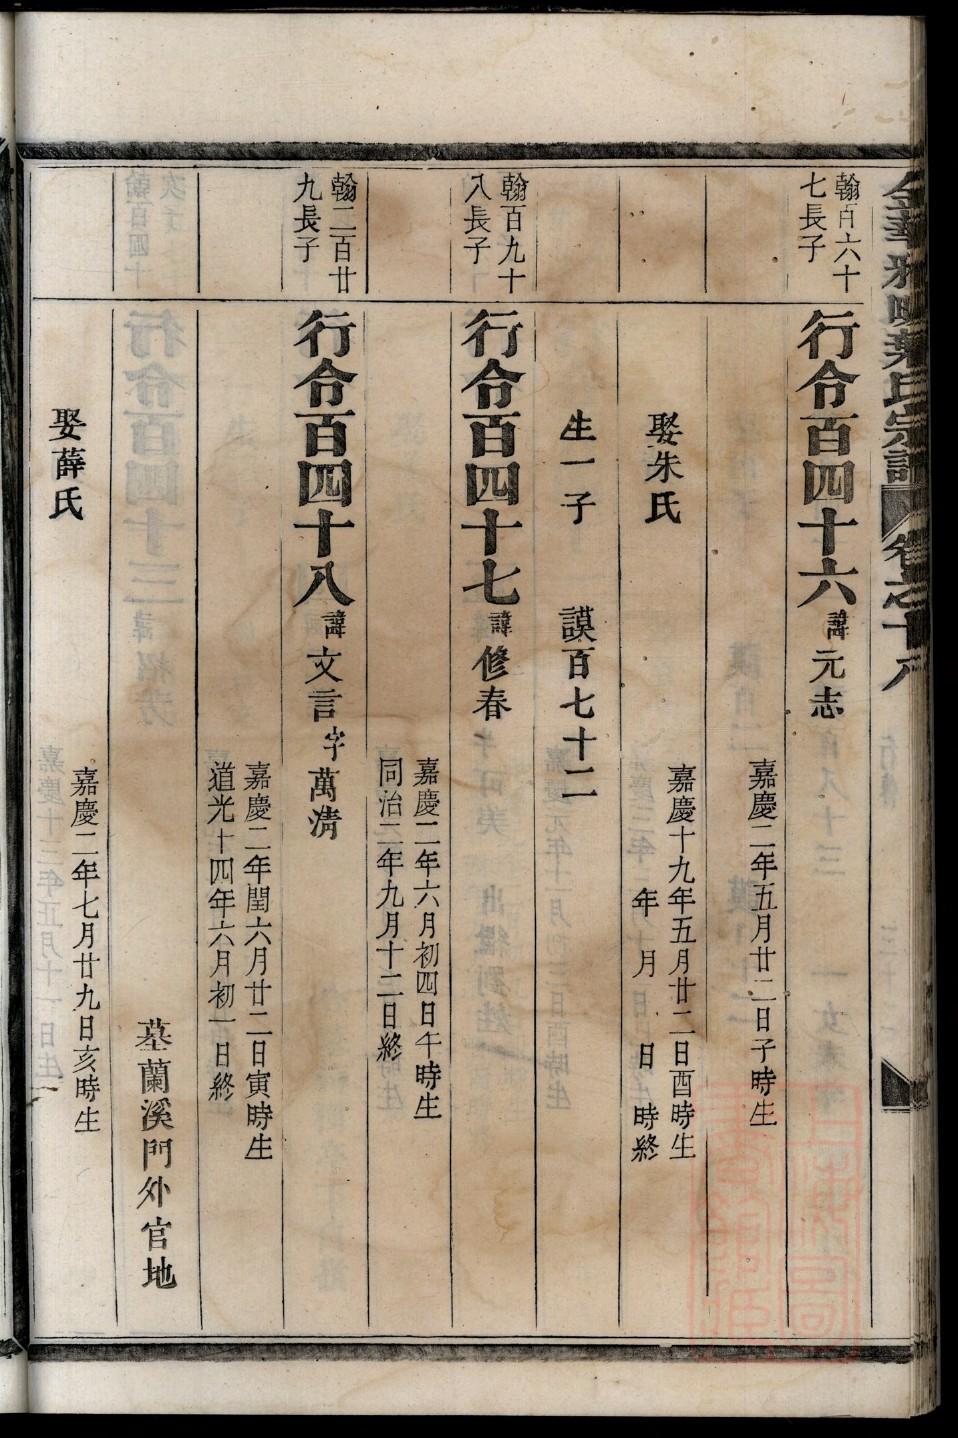 金華雅畈葉氏宗譜 卷之十八
翰百六十
七長子
行令百四十六 諱元志
嘉慶二年五月廿二日子時生
娶朱氏
嘉慶十九年五月廿二日酉時生
年 月 日 時終
生一子 謨百七十二
翰百九十
八長子
行令百四十七 諱修春
嘉慶二年六月初四日午時生
同治二年九月十二日終
翰二百廿
九長子
行令百四十八 諱文言 字萬清
嘉慶二年閏六月廿二日寅時生
道光十四年六月初一日終
墓蘭溪門外官地
娶薛氏
嘉慶二年七月廿九日亥時生